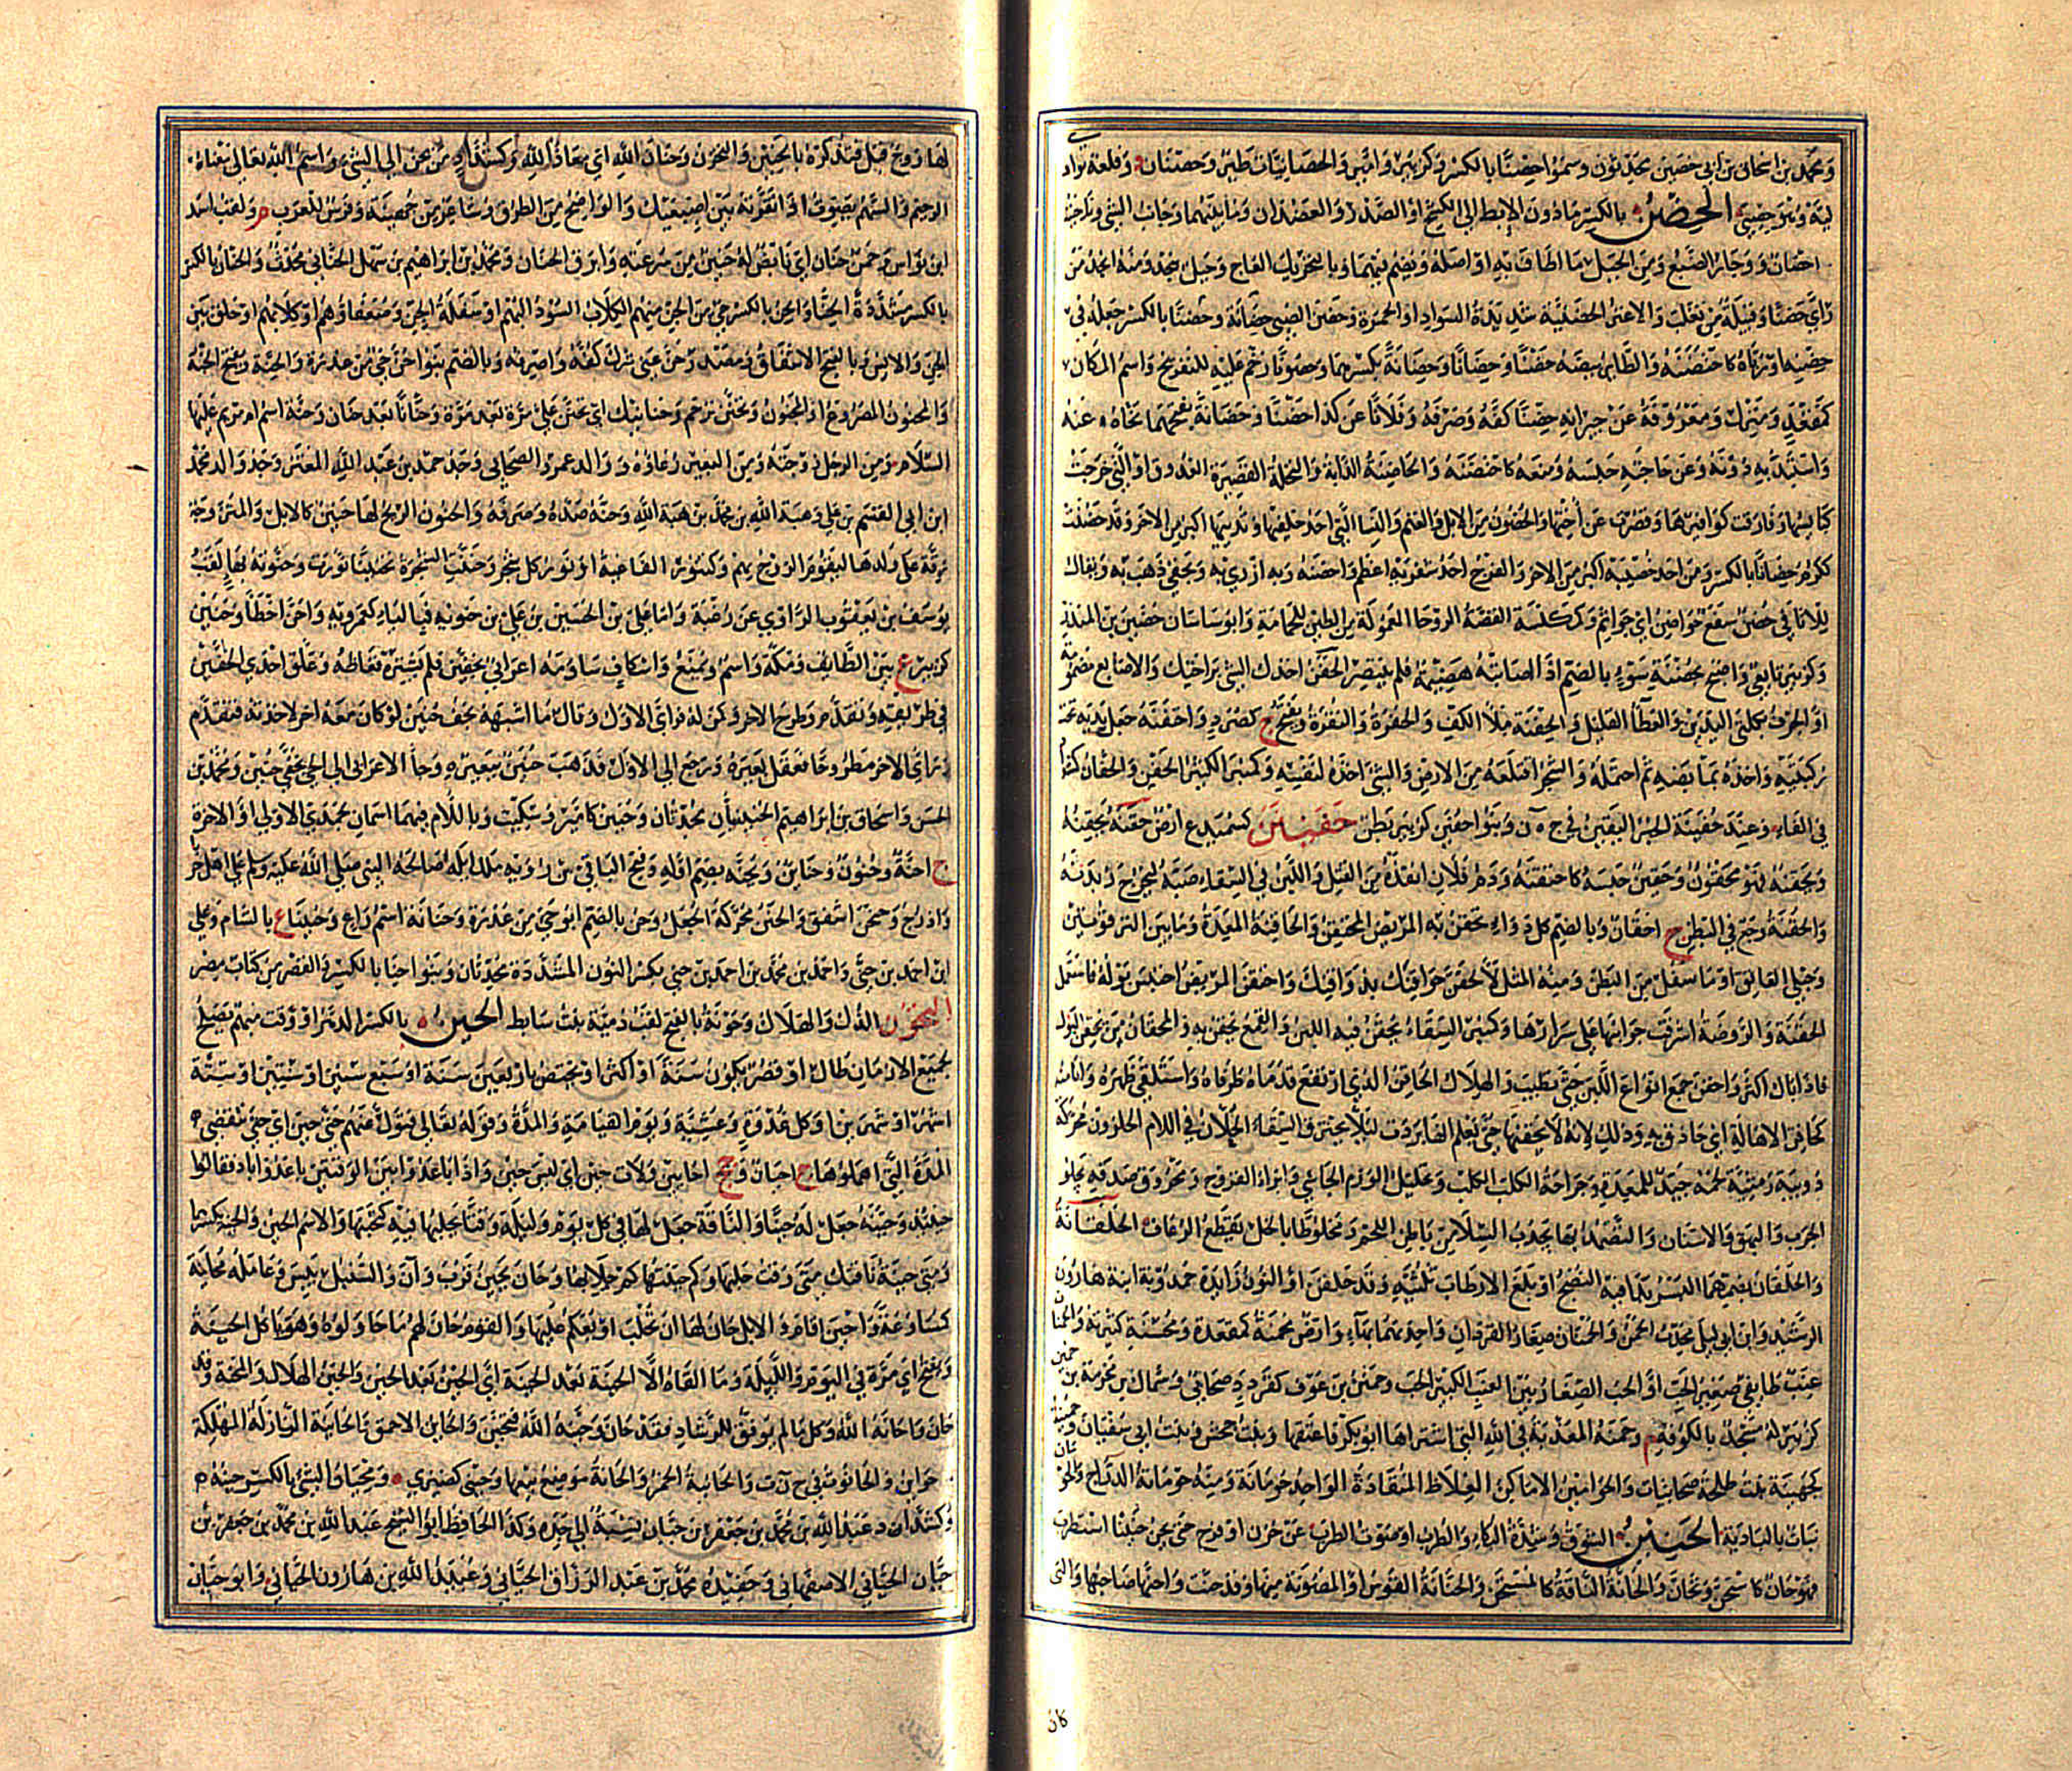 وَمحمَّد بن اسحاق بن ابى حصين محدّثون وسموا حِصنًا بالكسر وكزبير وامير والحصانيات طير وحصنان وقلعة بواد
لية وبنو حصن الحِضْنُ بالكسر مادون الابط الى الكشح او الصّدر والعضدان وما بينهما وجانب الشئ وناحيته
احضان ووجار الضبع ومن الجبل ما اطاف به او اصله ويضم فيهما وبالتحريك العاج وجبل بنجد ومنه انجد من
رأى حضنا وقبيلة من تغلب والاعنز الحضنية شديدة السواد او الحمرة وحضن الصبى حضانة وحضنا بالكسر جعله فى
حضنه او رباه كاحتضنه والطائر بيضه حضنا وحضانا وحضانة بكسرهما وحضونا رخم عليه للتفريخ واسم المكان
كمقعد ومنزل ومعروفه عن جيرانه حضنا كفه وصرفه وفلانا عن كذا حضنا وحضانة بفتحهما نحاه عنه
واستبد به دونه وعن حاجته حبسه ومنعه كاحتضنه والحاضنة الداية والنخلة القصيرة العذوق او التى خرجت
كبايسها وفارقت كوافيرها وقصرت عن اختها والحضون من الابل والغنم والنساء التى احد خلفيها وثدييها اكبر من الاخر وقد حضنت
ككرم حضانا بالكسر ومن احد خصييه اكبر من الاخر والفرج احد شفريه اعظم واحضنه وبه ازرى به وبحقى ذهب به ويقال
للاثافى حضن سفع حواضن اى جواثم وكمكنسة القصعة الروحا المعمولة من الطين للحمامة وابو ساسان حضين بن المنذر
وكزبير تابعى واصبح بحضنة سوء بالضم اذا اصابته هضيمة فلم ينتصر الحفن اخذك الشئ براحتيك والاصابع مضمومة
او الجرف بكلتى اليدين والعطا القليل والحفنة ملأ الكف والحفرة والنقرة ويفتح ج كصرد واحتفنه جعل يديه تحت
ركبتيه واخذه بمابضه ثم احتمله والشجر اقتلعه من الارض والشئ اخذه لنفسه وكمنبر الكثير الحفن والحفان كشداد
فى الفاء وعند حفينة الخبر اليقين فى ج ه ن وبنو حفين كزبير بطن حفيتن كسميدع ارض حقنه يحقنه
ويحقنه فهو محقون وحقين حبسه كاحتقنه ودم فلان انقذه من القتل واللبن فى السقاء صبه ليخرج زبدته
والحقنة وجع فى البطن ج احقان وبالضم كل دواء يحقن به المريض المحتقن والحاقنة المعدة وما بين الترقوتين
وحبلى العاتق او ما سفل من البطن ومنه المثل لألحقن حواقنك بذواقنك واحتقن المريض احتبس بوله فاستعمل
الحقنة والروضة اشرفت جوانبها على سرارها وكمنبر السقاء يحقن فيه اللبن والقمع يحقن به والمحقان من يحقن البول
فاذا بال اكثر واحقن جمع انواع اللبن حتى يطيب والهلال الحاقن الذى ارتفع قدماه طرفاه واستلقى ظهره وانا منه
كحاقن الاهالة اى حاذق به وذلك لانه لا يحقنها حتى يعلم انها بردت ليلا يحترق السقاء الحملان فى اللام الحلزون محركة
دويبة رمثية لحمه جيد للمعدة وجراحة الكلب الكلب وتحليل الورم الجاسى وابراء القروح ومحروق صدفه يجلو
الجرب والبهق والاسنان والتضمد بها يجذب السلاء من باطن اللحم ومخلوطا بالخل يقطع الرعاف الحلقانة
والحلقان بضمهما البسر بدا فيه النضج او بلغ الارطاب ثلثيه وقد حلقن او النون زايدة حمدونة ابنة هارون
الرشيد وابن ابى ليلى محدث الحمن والحمنان صغار القردان واحدتهما بهاء وارض محمنة كمقعدة ومحسنة كثيرته والحمنان
عنب طايفى صغير الحب او الحب الصغار بين العنب الكبير الحب وحمنن بن عوف كقردد صحابى وسماك بن مخرمة بن حمين
كزبير له مسجد بالكوفة م وحمنة المعذبة فى الله التى اشتراها ابو بكر فاعتقها وبنت جحش وبنت ابى سفيان وحمينة
كجهينة بنت طلحة صحابيات والحوامين الاماكن الغلاظ المنقادة الواحد حومانة ومنه حومانة الدراج والحومان
نبات بالبادية الحنين الشوق وشدة البكاء والطرب او صوت الطرب عن حزن او فرح حن يحن حنينا استطرب
فهو حان كاستحن وتحان والحانة الناقة كالمستحن والحنانة القوس او المصوتة منها وقد حنت واحنها صاحبها والتى
كان
لها زوج قبل فتذكره بالحنين والتحزن وحنان الله اى معاذ الله وكشداد من يحن الى الشئ واسم الله تعالى بمعناه
الرحيم والسهم يصوت اذا نقرته بين اصبعيك والواضح من الطرق وشاعر من جهينة وفرس للعرب م ولقب اسد
ابن نواس وخمس حنان اى نابض له حنين من سرعته وابرق الحنان ومحمد بن ابراهيم بن سهل الحنانى محدث والحنان بالكسر
بالكسر مشددة الحناء والحن بالكسر حى من الجن منهم الكلاب السود البهم او سفلة الجن وضعفاؤهم او كلابهم او خلق بين
الجن والانس وبالفتح الاشفاق ومصدر حن عنى شرك كفه واصرفه وبالضم بنو حن حى من عذرة والحنة ويفتح الجنة
والمحنون المصروع او المجنون وتحنن ترحم وحنانيك اى تحنن على مرة بعد مرة وحنانا بعد حنان وحنة اسم ام مريم عليها
السلام ومن الرجل زوجته ومن البعير رغاؤه ووالد عمرو الصحابى وجد حمد بن عبد الله المعبّر وجد والد محمد
ابن ابى القسم بن على وهبة الله بن محمد بن هبة الله وحنه صده وصرفه والحنون الريح لها حنين كالابل والمتزوجة
رقة على ولدها ليقوم الزوج بهم وكتنور الفاغية او نور كل شجر وحننت الشجرة تحنينا نورت وحنونة بهاء لقب
يوسف بن يعقوب الراوى عن زغبة واما على بن الحسين بن على بن حنويه فبالياء كعمرويه واحن اخطأ وحنين
كزبير ع بين الطايف ومكة واسم ويمنع واسكاف ساومه اعرابى بخفين فلم يشتره فغاظه وعلق احدى الخفين
فى طريقه وتقدم وطرح الاخر وكمن له فرأى الاول وقال ما اشبهه بخف حنين لو كان معه اخر لاخذته فتقدم
فرأى الاخر مطروحا فعقل بعيره ورجع الى الاول فذهب حنين ببعيره وجاء الاعرابى الى الحى بخفى حنين ومحمد بن
الحسن واسحاق بن ابراهيم الحنينيان محدثان وحنين كامير وسكيت وباللام فيهما اسمان لجمدى الاولى او الاخرة
ج احنة وحنون وحناين ويحنه بضم اوله وفتح الباقى بن رؤبة ملك ايله صالحه النبى صلى الله عليه وسلم على اهل جربا
واذرح وحنحن اشفق والحنن محركة الجعل وحن بالضم ابو حى من عذرة وحنانة اسم راع وحنينا ع بالشام وعلى
ابن احمد بن حنى واحمد بن محمد بن احمد بن حنى بكسر النون المشددة محدثان وبنو احنا بالكسر والقصر من كتاب مصر
التحون الذل والهلاك وحونة بالفتح لقب دمية بنت سابط الحين بالكسر الدهر او وقت مبهم يصلح
لجميع الازمان طال او قصر يكون سنة او اكثر او يختص باربعين سنة او سبع سنين او سنتين او ستة
اشهر او شهرين او كل غدوة وعشية ويوم القيامة والمدة وقوله تعالى فتول عنهم حتى حين اى حتى تنقضى
المدة التى امهلوها ج احيان وجج احايين ولات حين اى ليس حين واذا باعدوا بين الوقتين باعدوا باذ فقالوا
حينئذ وحينه جعل له حينا والناقة جعل لها فى كل يوم وليلة وقتا يحلبها فيه كتحينها والاسم الحين والحينة بكسرهما
ومتى حينة ناقتك متى وقت حلبها وكم حينتها كم حلابها وحان يحين قرب وآن والسنبل يبس وعامله محاينة
كمساوعة واحين اقام والابل حان لها ان تحلب او يعكم عليها والقوم حان لهم ما حاولوه وهو ياكل الحينة
ويفتح اى مرة فى اليوم والليلة وما القاه الا الحينة بعد الحينة اى الحين بعد الحين والحين الهلاك والمحنة وقد
حان واحانه الله وكل ما لم يوفق للرشاد فقد حان وحينه الله فتحين والحاين الاحمق والحاينة النازلة المهلكة
حواين والحانوت فى ح ن ت والحانية الخمر والحانة موضع بيعها وحينى كضيزى ومحيان الشئ بالكسر حينه
وكشداد عبد الله بن محمد بن جعفر بن حيان نسبة الى جده وكذا الحافظ ابو الشيخ عبد الله بن محمد بن جعفر بن
حيان الحيانى الاصفهانى وحفيده محمد بن عبد الرزاق الحيانى وعبيد الله بن هارون الحيانى وابو حيان